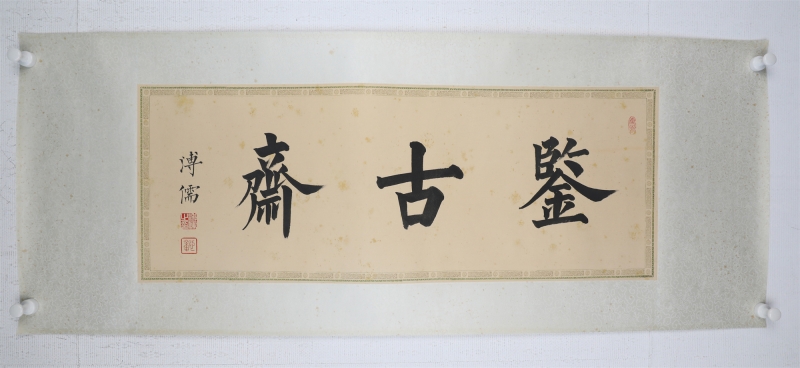 鑒古齋
溥儒